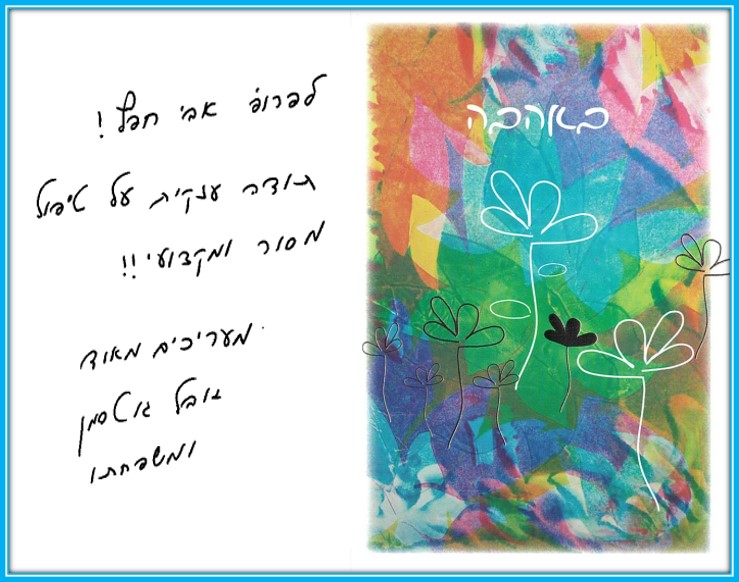 לפרופ' אבי חפץ !
תודה ענקית על טיפול
מסור ומקצועי !!
מעריכים מאוד
יובל גוטסמן
ומשפחתו
באהבה